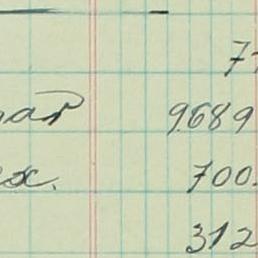 77
9689
ex. 700.
312